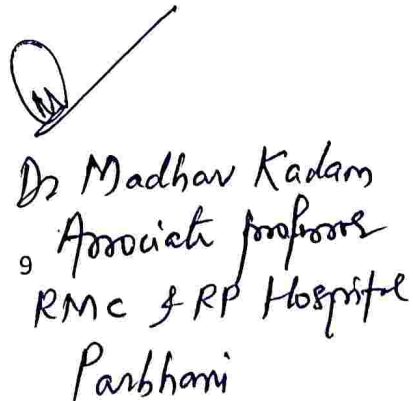 Dr Madhav Kadam
Associate professor
9
RMC & RP Hospital
Parbhani